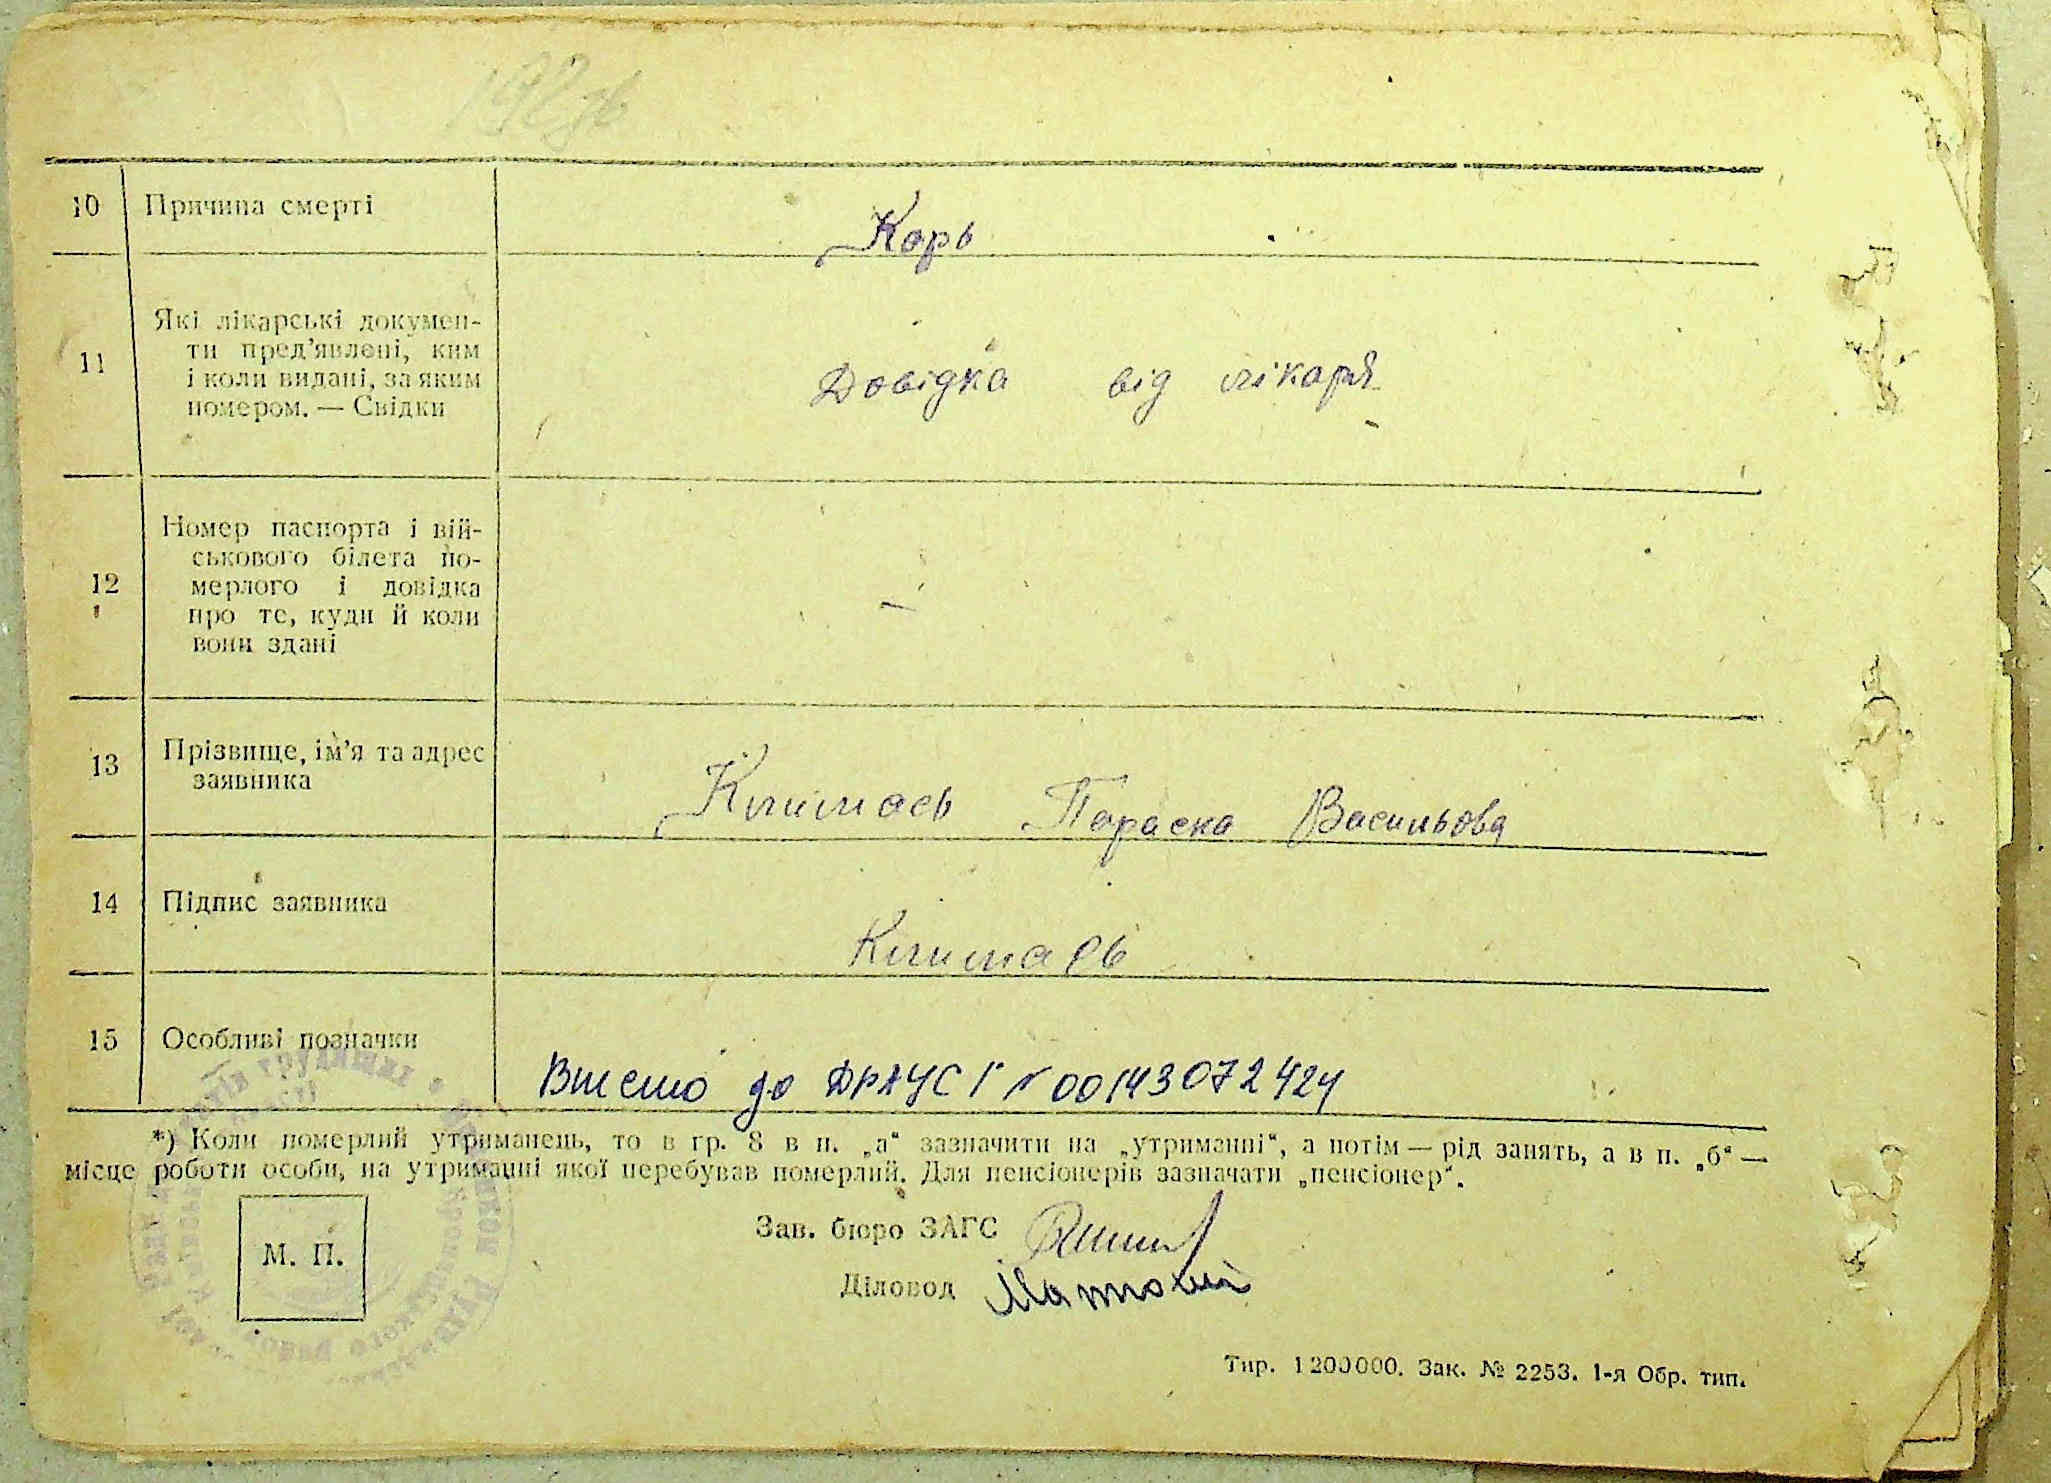 10 Причина смерті Корь
11 Які лікарські докумен-
ти пред’явлені, ким
і коли видані, за яким
номером. — Свідки
Довідка від лікаря
12 Номер паспорта і вій-
ськового білета по-
мерлого і довідка
про те, куди й коли
вони здані
—
13 Прізвище, ім’я та адрес
заявника
Климась Параска Васильова
14 Підпис заявника
Климась
15 Особливі позначки
Внесено до ДРАЦСГ № 00143072424
*) Коли померлий утриманець, то в гр. 8 в п. „а“ зазначити на „утриманні“, а потім — рід занять, а в п. „б“ —
місце роботи особи, на утриманні якої перебував померлий. Для пенсіонерів зазначати „пенсіонер“.
М. П.
Зав. бюро ЗАГС
Діловод
Тир. 1200000. Зак. № 2253. 1-я Обр. тип.